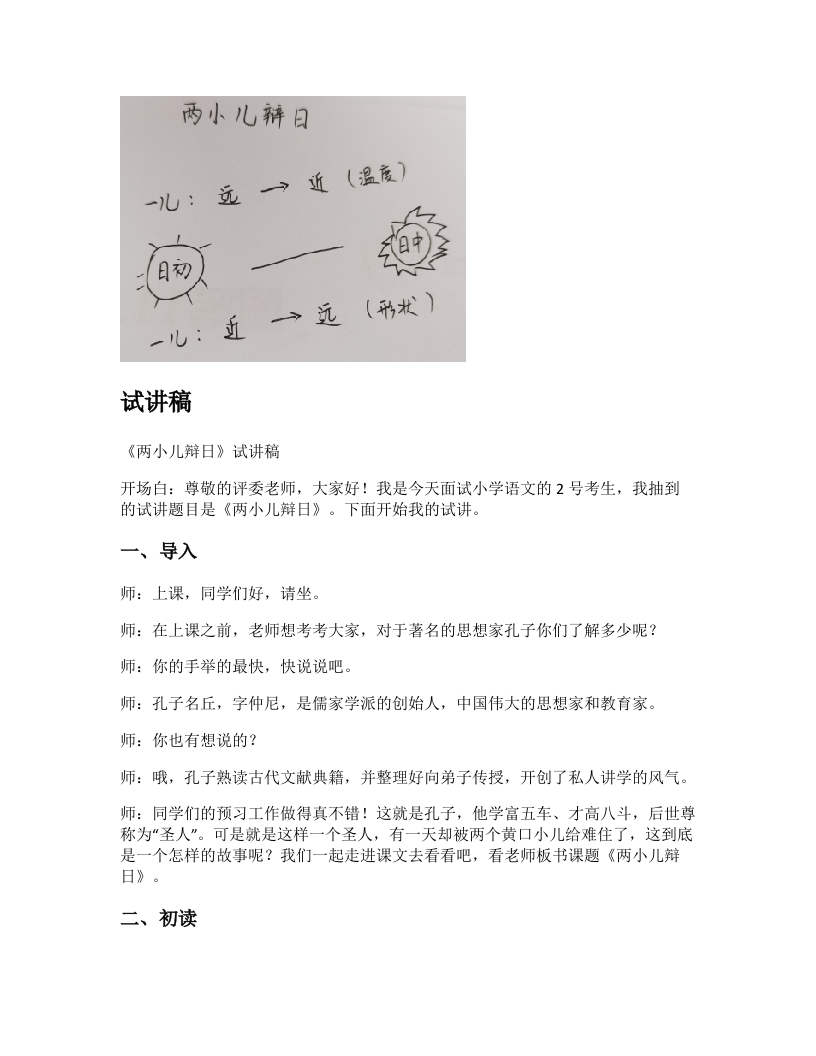 两小儿辩日
一儿：远 → 近（温度）
日初
日中
一儿：近 → 远（形状）
试讲稿
《两小儿辩日》试讲稿
开场白：尊敬的评委老师，大家好！我是今天面试小学语文的 2 号考生，我抽到
的试讲题目是《两小儿辩日》。下面开始我的试讲。
一、导入
师：上课，同学们好，请坐。
师：在上课之前，老师想考考大家，对于著名的思想家孔子你们了解多少呢？
师：你的手举的最快，快说说吧。
师：孔子名丘，字仲尼，是儒家学派的创始人，中国伟大的思想家和教育家。
师：你也有想说的？
师：哦，孔子熟读古代文献典籍，并整理好向弟子传授，开创了私人讲学的风气。
师：同学们的预习工作做得真不错！这就是孔子，他学富五车、才高八斗，后世尊
称为“圣人”。可是就是这样一个圣人，有一天却被两个黄口小儿给难住了，这到底
是一个怎样的故事呢？我们一起走进课文去看看吧，看老师板书课题《两小儿辩
日》。
二、初读